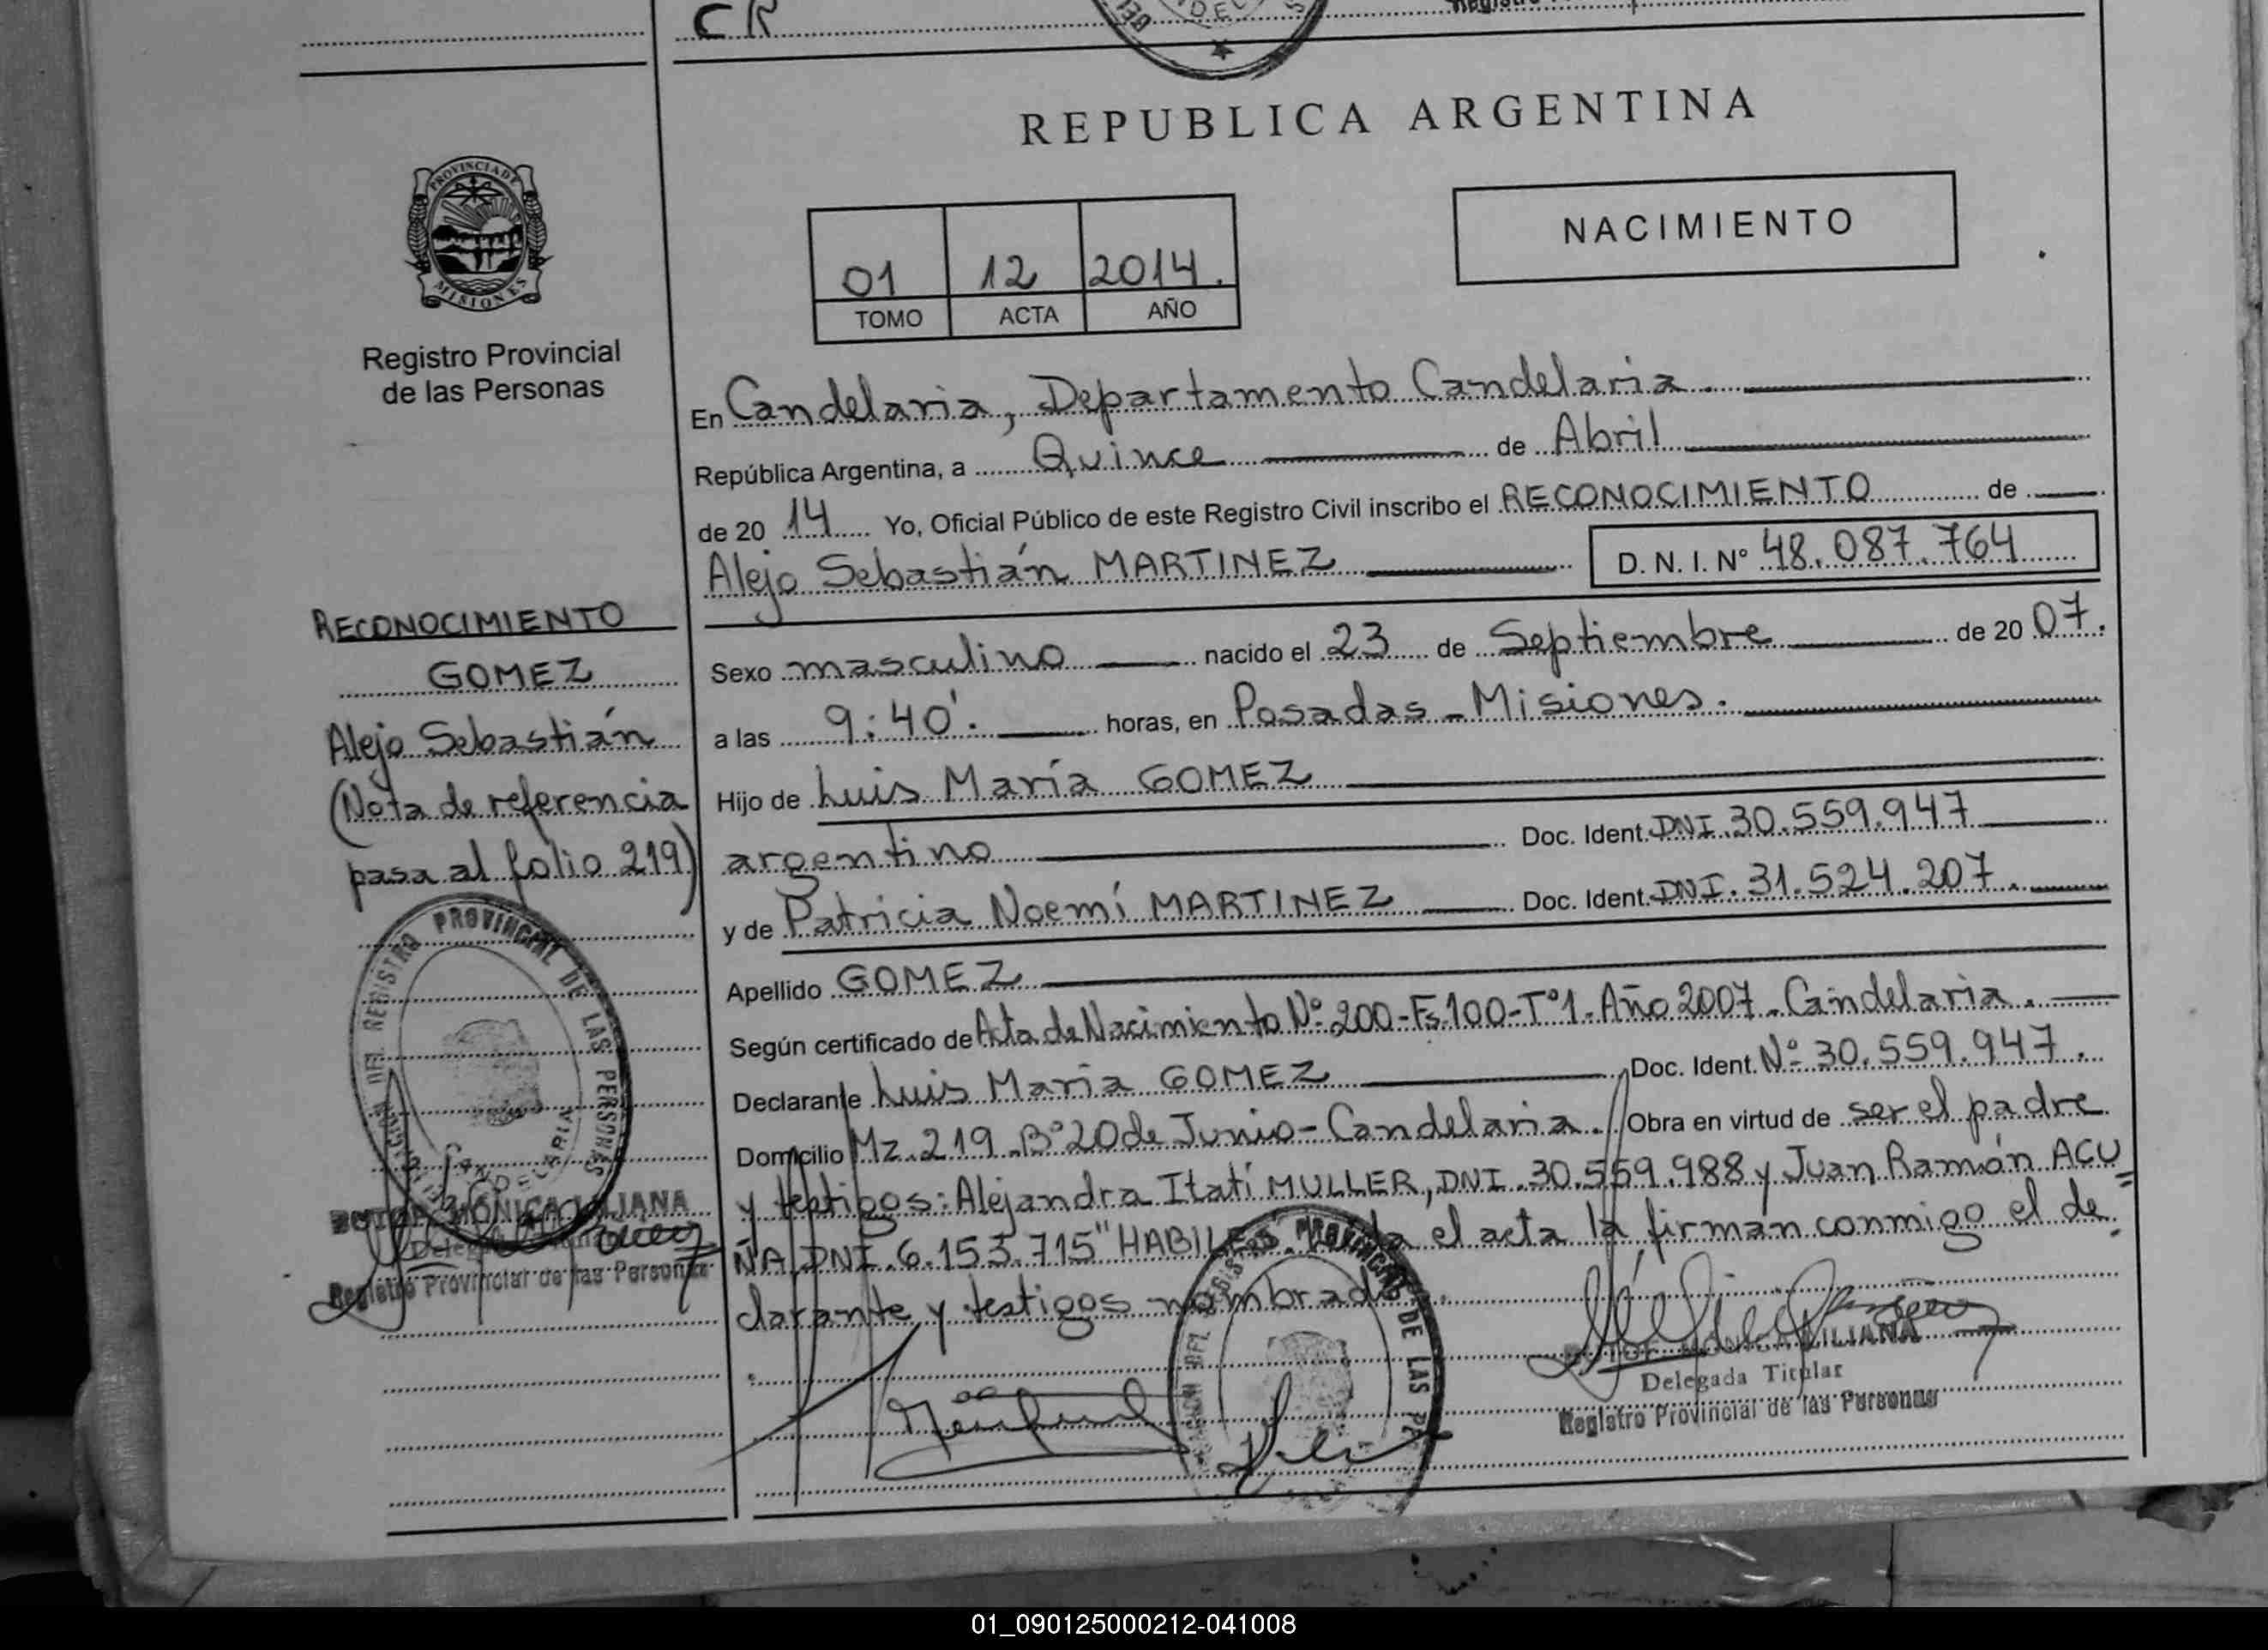 CR
REPUBLICA ARGENTINA
PROVINCIA DE
MISIONES
Registro Provincial
de las Personas
NACIMIENTO
01 12 2014.
TOMO ACTA AÑO
En Candelaria, Departamento Candelaria.
República Argentina, a Quince de Abril
de 20 14 Yo, Oficial Público de este Registro Civil inscribo el RECONOCIMIENTO de
Alejo Sebastián MARTINEZ D. N. I. N° 48.087.764
RECONOCIMIENTO
GOMEZ
Alejo Sebastián
(Nota de referencia
pasa al folio 219)
Sexo masculino nacido el 23 de Septiembre de 20 07.
a las 9:40'. horas, en Posadas - Misiones.
Hijo de Luis María GOMEZ
argentino Doc. Ident. DNI 30.559.947
y de Patricia Noemí MARTINEZ Doc. Ident. DNI. 31.524.207.
Apellido GOMEZ
Según certificado de Acta de Nacimiento Nº 200-Fs.100-Tº1-Año 2007-Candelaria.
Declarante Luis María GOMEZ Doc. Ident. Nº 30.559.947.
Domicilio Mz. 219 Bº 20 de Junio-Candelaria. Obra en virtud de ser el padre
y testigos: Alejandra Itatí MULLER, DNI. 30.559.988 y Juan Ramón ACU=
ÑA DNI. 6.153.715 "HABILES. el acta la firman conmigo el de-
clarante y testigos nombrados.
DEL REGISTRO PROVINCIAL DE LAS PERSONAS
CANDELARIA
MONICA LILIANA
Registro Provincial de las Personas
PROVINCIAL DE LAS
LILIANA
Delegada Titular
Registro Provincial de las Personas
01_090125000212-041008